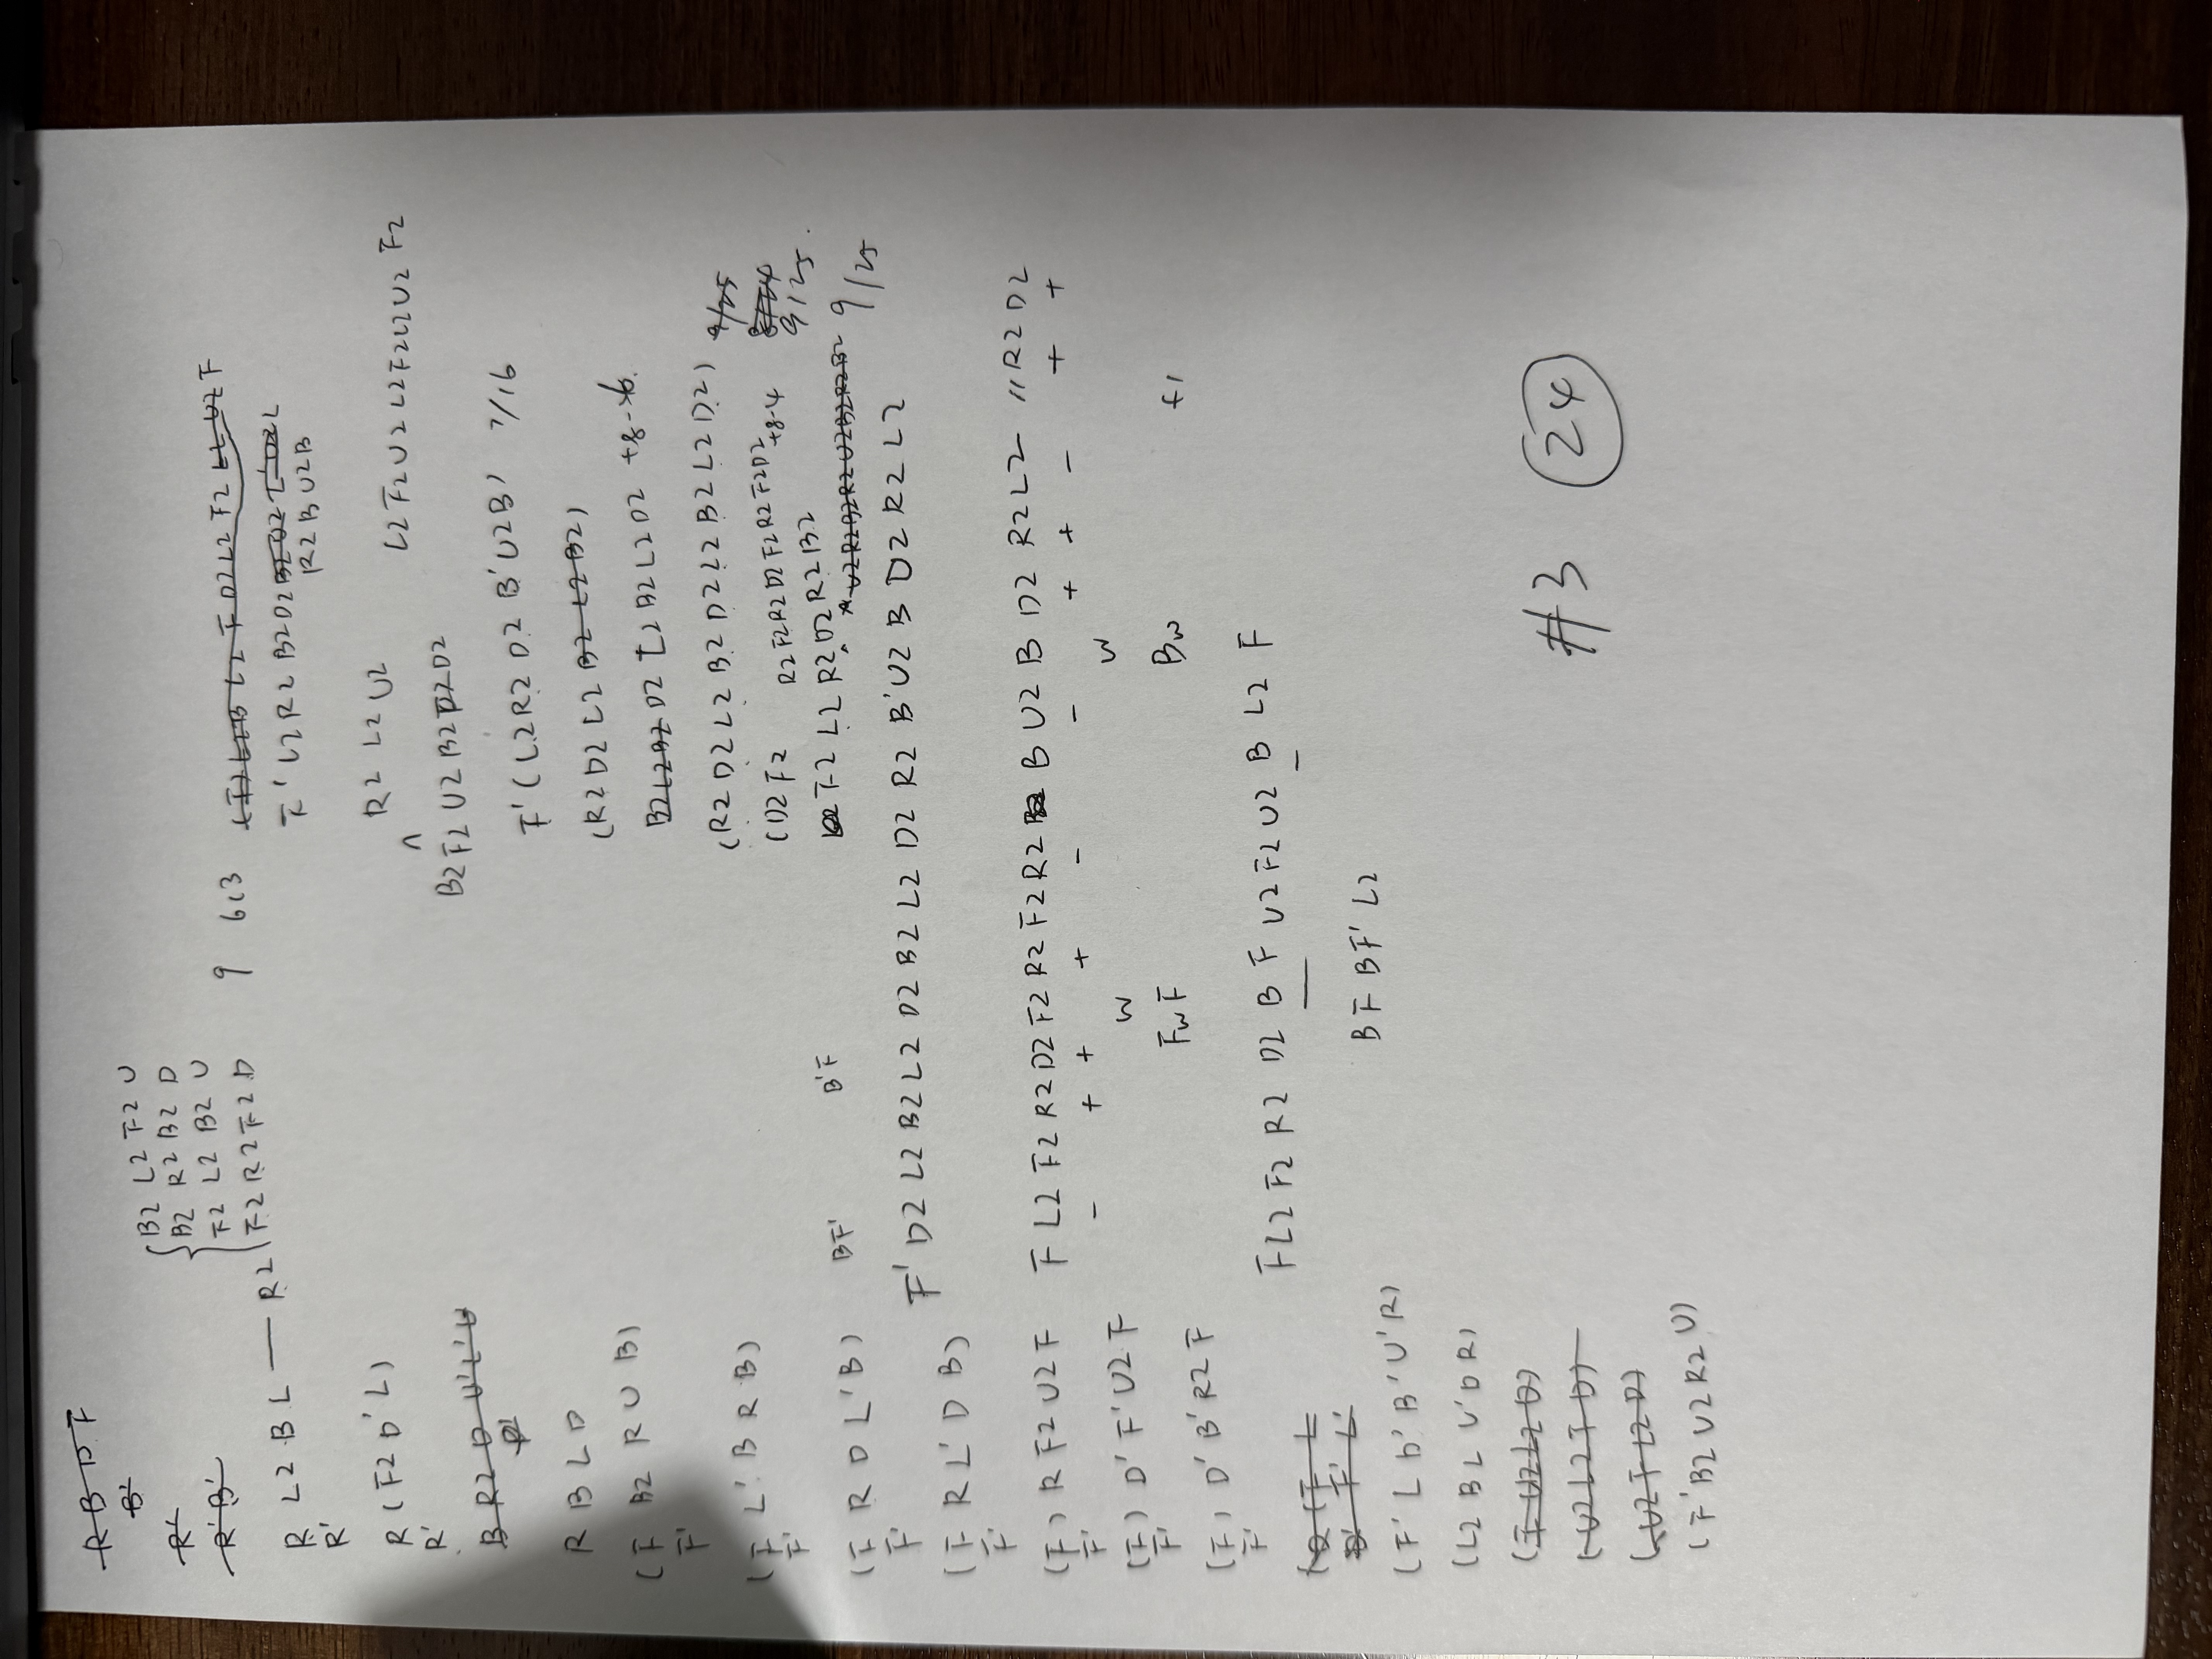 R B D F
B'
R'
R' B'
R L2 B L — R2
R'
B2 L2 F2 U
B2 R2 B2 D
F2 L2 B2 U
F2 R2 F2 D
R (F2 D' L)
R'
B R2 D U' L' U
R B L D
(F B2 R U B)
F'
(F L' B R B)
F'
(F R D L' B)
F'
(F R L' D B)
F'
(F) R F2 U2 F
F'
(F) D' F' U2 F
F'
(F) D' B' R2 F
F'
(F' L D' B' U' R)
(L2 B L U' D R)
(F U2 L2 D)
(U2 L2 F D)
(U2 F L2 D)
(F' B2 U2 R2 U)
9 6c3
F' L2 R2 B2 D2
R2 B U2 B
R2 L2 U2
L2 F2 U2 L2 F2 L2 U2 F2
^
B2 F2 U2 B2 D2
F' (L2 R2 D2 B' U2 B) 7/16
(R2 D2 L2 B2 L2 B2)
B2 L2 B2 D2 L2 B2 L2 D2 +8-
(R2 D2 L2 B2 D2 L2 B2 L2 D2) 9/25
(D2 F2 R2 F2 R2 D2 F2 R2 F2 D2 +8-4 9/25
F2 L2 R2 D2 R2 B2
U2 R2 B2 R2 U2 B2 R2 B2 9/25
BF' B'F
F' D2 L2 B2 L2 D2 B2 L2 D2 R2 B' U2 B D2 R2 L2
F L2 F2 R2 D2 F2 R2 F2 R2 B U2 B D2 R2 L2 " R2 D2
- + + + - - + + - + +
w w
Fw F Bw +1
F L2 F2 R2 D2 B F U2 F2 U2 B L2 F
B F B F' L2
#3 24